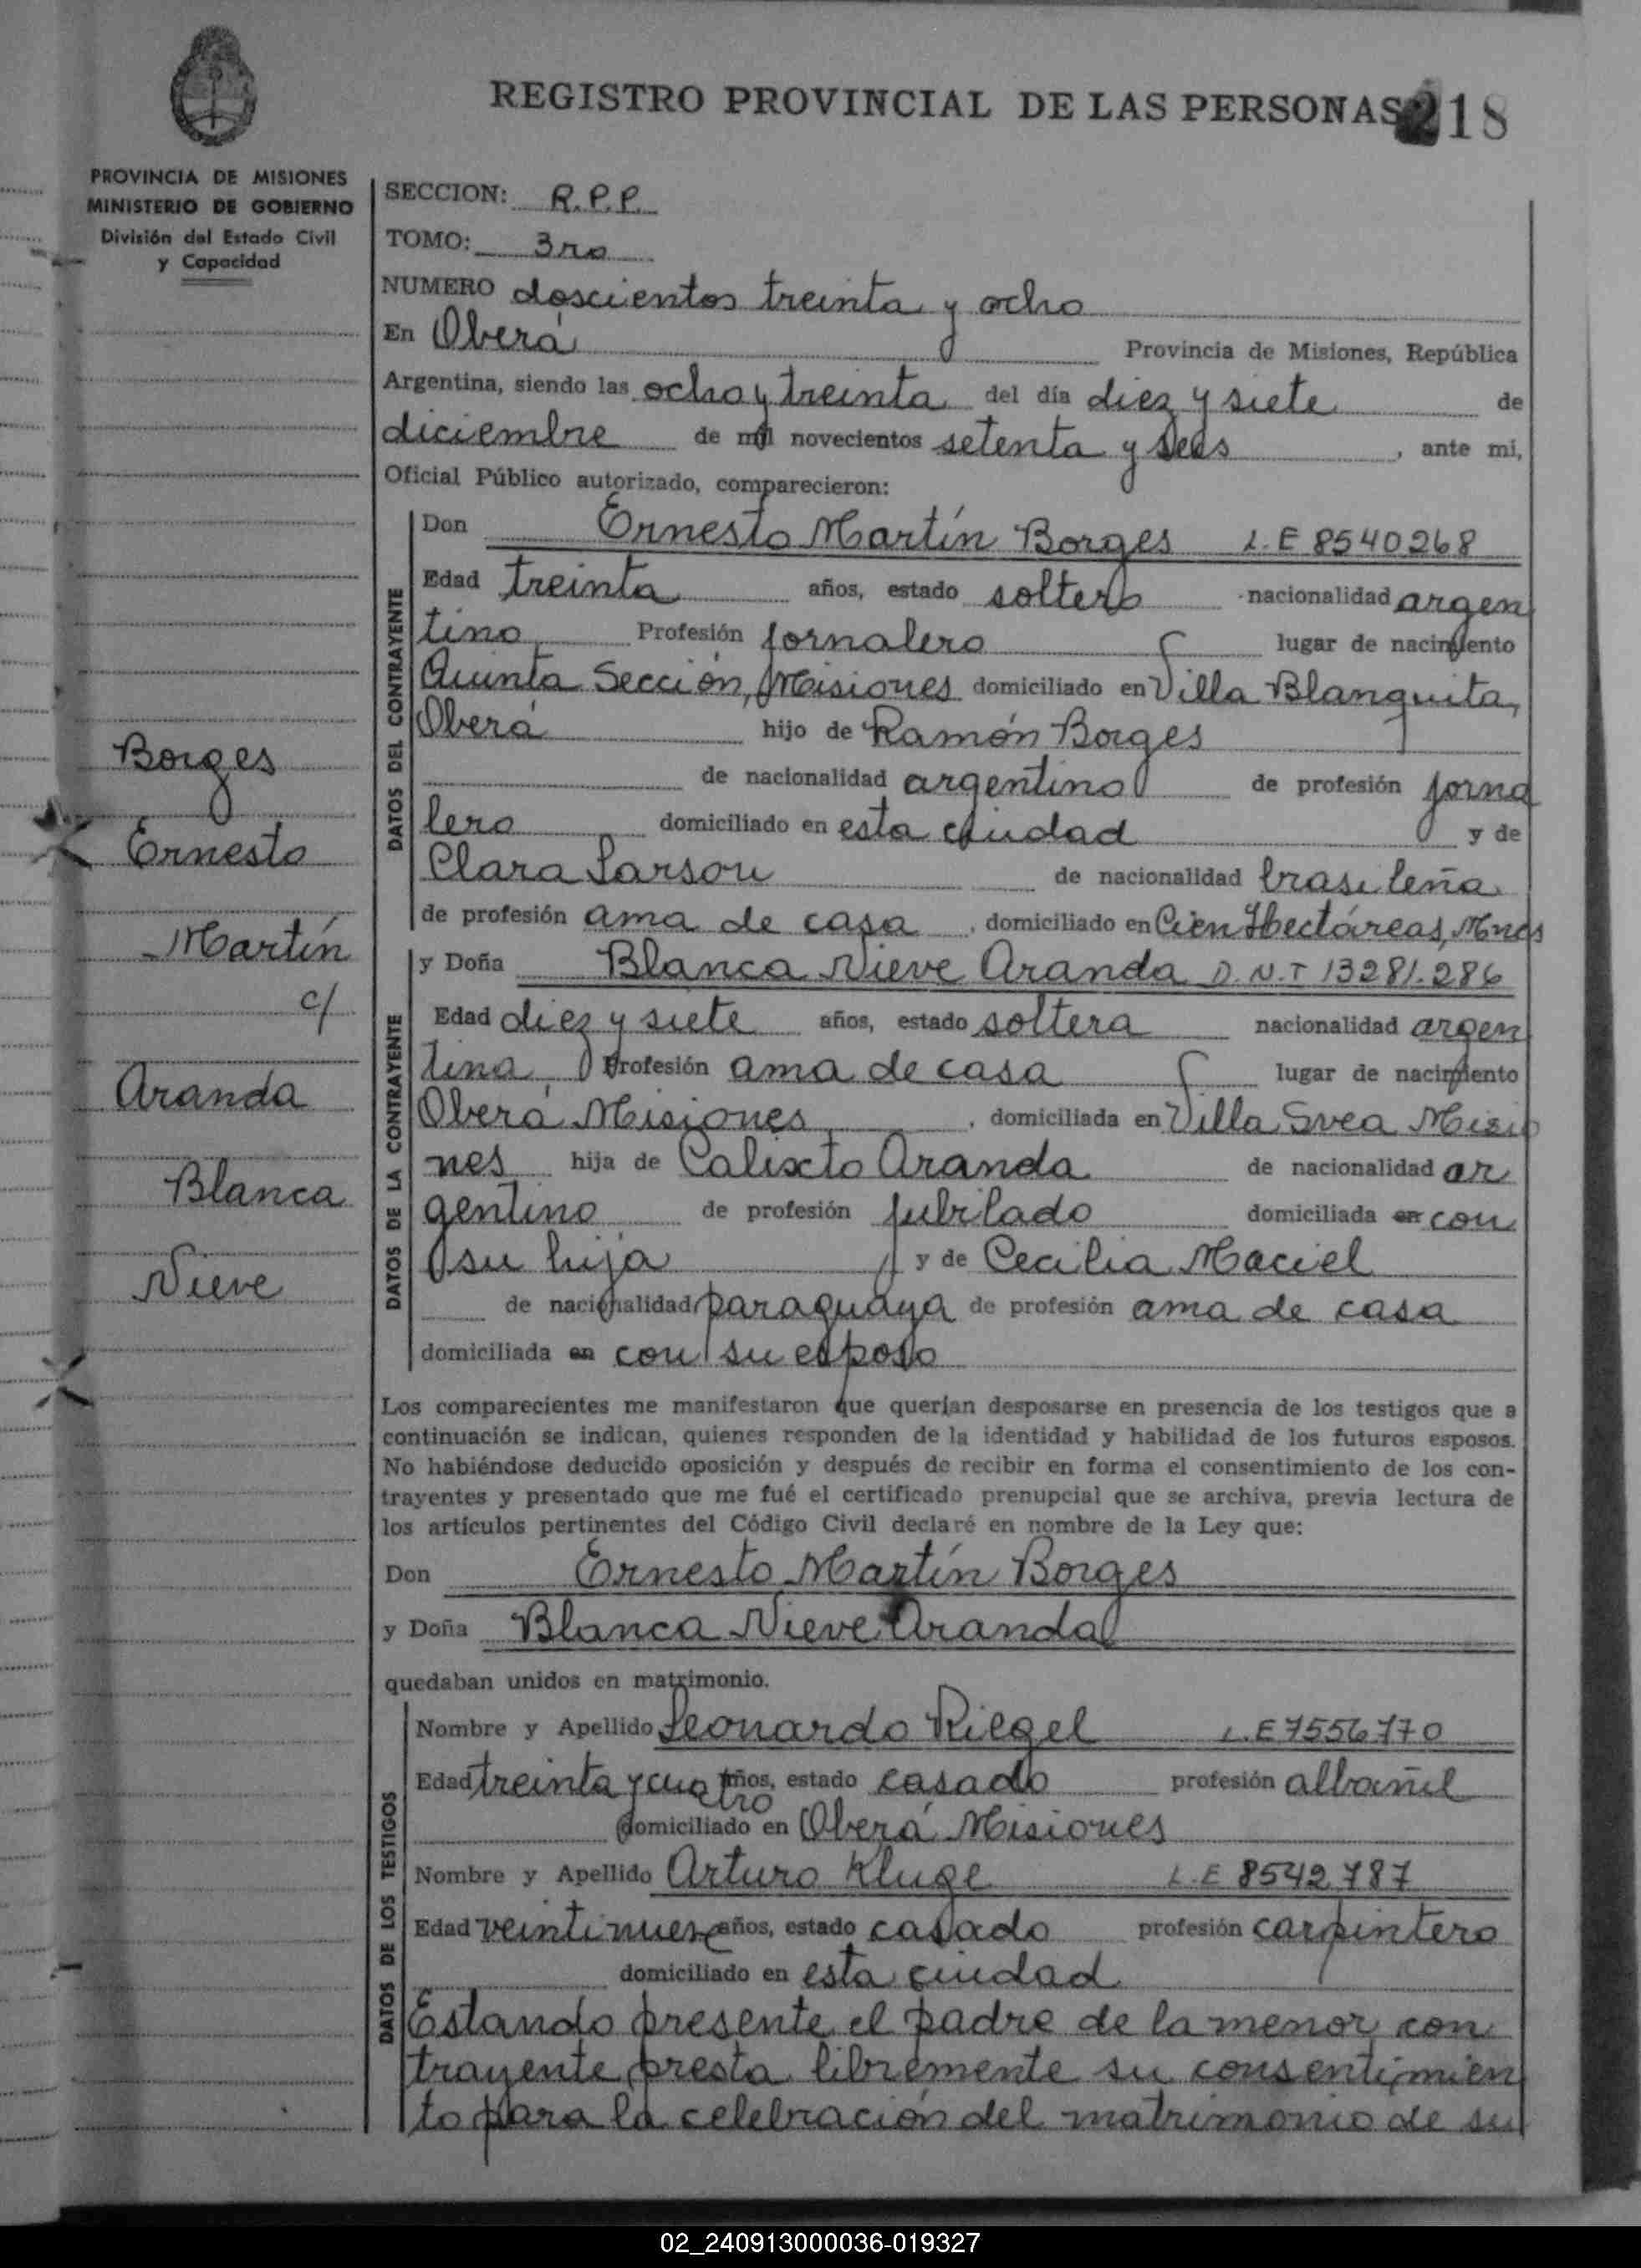 REGISTRO PROVINCIAL DE LAS PERSONAS 218
PROVINCIA DE MISIONES
MINISTERIO DE GOBIERNO
División del Estado Civil
y Capacidad
SECCION: R.P.P.
TOMO: 3ro
NUMERO doscientos treinta y ocho
En Oberá Provincia de Misiones, República
Argentina, siendo las ocho y treinta del día diez y siete de
diciembre de mil novecientos setenta y seis, ante mi,
Oficial Público autorizado, comparecieron:
DATOS DEL CONTRAYENTE
Don Ernesto Martín Borges L.E 8540268
Edad treinta años, estado soltero nacionalidad argen
tino Profesión jornalero lugar de nacimiento
Quinta Sección, Misiones domiciliado en Villa Blanquita,
Oberá hijo de Ramón Borges
de nacionalidad argentino de profesión jorna
lero domiciliado en esta ciudad y de
Clara Larson de nacionalidad brasileña
de profesión ama de casa, domiciliado en Cien Hectáreas, Mnes
DATOS DE LA CONTRAYENTE
y Doña Blanca Nieve Aranda D.N.I 13281.286
Edad diez y siete años, estado soltera nacionalidad argen
tina Profesión ama de casa lugar de nacimiento
Oberá Misiones, domiciliada en Villa Svea Misio
nes hija de Calixto Aranda de nacionalidad ar
gentino de profesión jubilado domiciliada en con
su hija y de Cecilia Maciel
de nacionalidad paraguaya de profesión ama de casa
domiciliada en con su esposo
Borges
Ernesto
Martín
c/
Aranda
Blanca
Nieve
Los comparecientes me manifestaron que querían desposarse en presencia de los testigos que a
continuación se indican, quienes responden de la identidad y habilidad de los futuros esposos.
No habiéndose deducido oposición y después de recibir en forma el consentimiento de los con-
trayentes y presentado que me fué el certificado prenupcial que se archiva, previa lectura de
los artículos pertinentes del Código Civil declaré en nombre de la Ley que:
Don Ernesto Martín Borges
y Doña Blanca Nieve Aranda
quedaban unidos en matrimonio.
DATOS DE LOS TESTIGOS
Nombre y Apellido Leonardo Riegel L.E 7556770
Edad treinta y cuatro años, estado casado profesión albañil
domiciliado en Oberá Misiones
Nombre y Apellido Arturo Kluge L.E 8542787
Edad veintinueve años, estado casado profesión carpintero
domiciliado en esta ciudad
Estando presente el padre de la menor con
trayente presta libremente su consentimien
to para la celebración del matrimonio de su
02_240913000036-019327